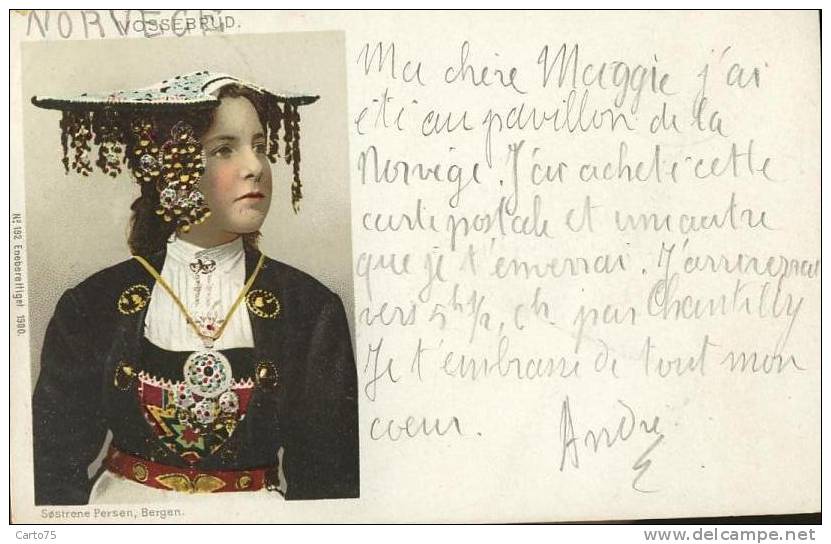 NORVEGE
VOSSEBRUD.
Ma chère Maggie j'ai
été au pavillon de la
Norvège. J'ai acheté cette
carte postale et une autre
que je t'enverrai. J'arriverai
vers 5h½, ch. par Chantilly
Je t'embrasse de tout mon
coeur.
André
No 192 Eneberettiget 1900.
Søstrene Persen, Bergen.
Carto75
http://www.delcampe.net